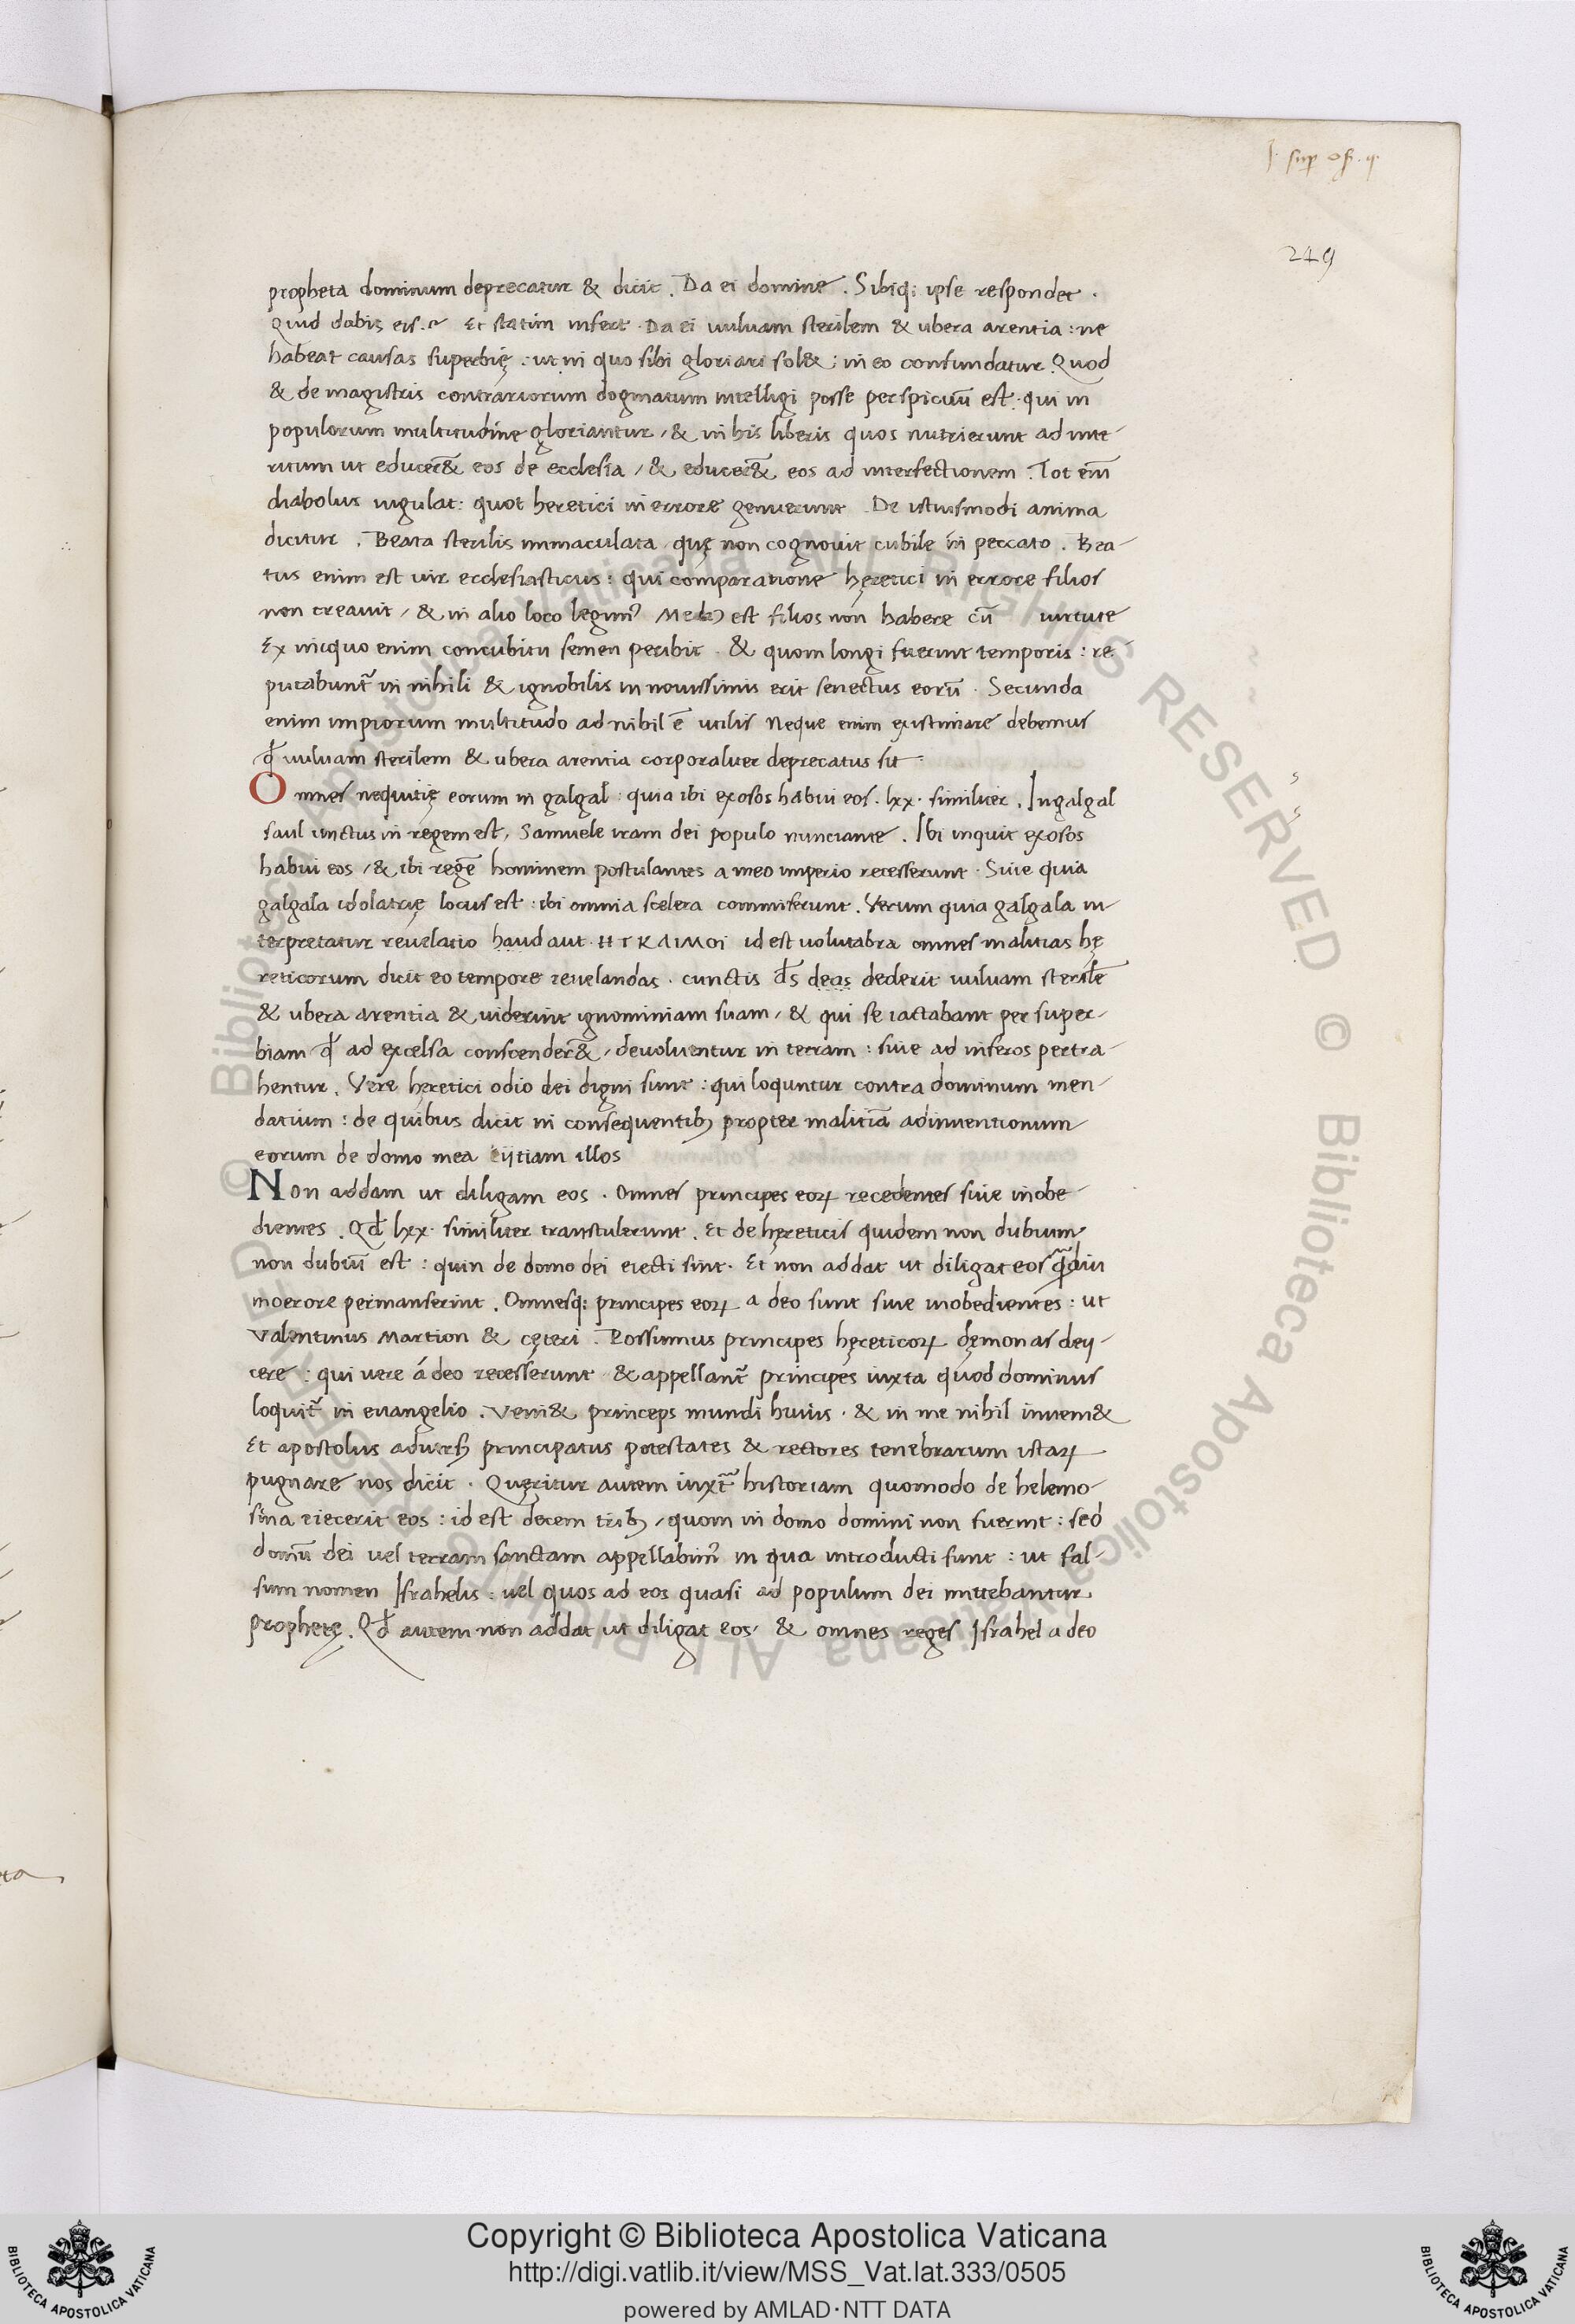 J. sup os. q.
249
propheta dominum deprecatur & dicit. Da ei domine. Sibiq; ipse respondet.
Quid dabis eis? Et statim infert. Da ei vuluam sterilem & ubera arentia: ne
habeat causas superbię: ut in quo sibi gloriari sol&: in eo confundatur. Quod
& de magistris contrariorum dogmatum intelligi posse perspicuū est. qui in
populorum multitudine gloriantur, & in his liberis quos nutrierunt ad inte-
ritum ut educer&̄ eos de ecclesia, & educer&̄ eos ad interfectionem. Tot em̄
diabolus iugulat: quot heretici in errore genuerunt. De istiusmodi anima
dicitur. Beata sterilis immaculata quę non cognouit cubile in peccato. Bea-
tus enim est uir ecclesiasticus: qui comparatione hęretici in errore filios
non creauit, & in alio loco legim⁹ est filios non habere cū uirtute
Ex iniquo enim concubitu semen peribit. & quom longi fuerint temporis: re
putabunt᷑ in nihili & ignobilis in nouissimis erit senectus eorū. Secunda
enim impiorum multitudo ad nihil ē utilis Neque enim existimare debemus
ꝙ vuluam sterilem & ubera arentia corporaliter deprecatus sit
Omnes nequitię eorum in galgal: quia ibi exosos habui eos. lxx. similiter. In galgal
saul unctus in regem est, Samuele iram dei populo nunciante. Ibi inquit exosos
habui eos, & ibi regē hominem postulantes a meo imperio recesserunt. Siue quia
galgala idolatrię locus est: ibi omnia scelera commiserunt. Verum quia galgala in
terpretatur reuelatio haud aut. ΗΓΚΛΙΜΟΙ id est uolutabra omnes malitias hę
reticorum dicit eo tempore reuelandas. cunctis d̄s deas dederit vuluam sterilē
& ubera arentia & uiderint ignominiam suam, & qui se iactabant per super-
biam ꝙ ad excelsa conscender&̄, deuoluentur in terram: siue ad inferos pertra-
hentur. Vere hęretici odio dei digni sunt: qui loquntur contra dominum men-
datium: de quibus dicit in consequentibꝫ propter malitiā adinuentionum
eorum de domo mea eijtiam illos
Non addam ut diligam eos. Omnes principes eoꝝ recedentes siue inobe
dientes. Qd̄ lxx. similiter transtulerunt. Et de hęreticis quidem non dubium
non dubiū est: quin de domo dei eiecti sint. Et non addat ut diligat eos q̄diu
moerore permanserint. Omnesq; principes eoꝝ a deo sunt siue inobedientes: ut
Valentinus Martion & cęteri. Possumus principes hęreticoꝝ dęmonas deij-
cere: qui uere á deo recesserunt & appellant᷑ principes iuxta quod dominus
loquit᷑ in euangelio. Veni& princeps mundi huius. & in me nihil inueni&
Et apostolus aduersꝫ principatus potestates & rectores tenebrarum istaꝝ
pugnare nos dicit. Quęritur autem iuxt᷑ historiam quomodo de helemo-
sina eiecerit eos: id est decem tribꝫ, quom in domo domini non fuerint: sed
domū dei uel terram sanctam appellabim⁹ in qua introducti sunt: ut fal-
sum nomen Israhelis: uel quos ad eos quasi ad populum dei mittebantur
prophetę. Qd̄ autem non addat ut diligat eos, & omnes reges Israhel a deo
© Biblioteca Apostolica Vaticana ALL RIGHTS RESERVED © Biblioteca Apostolica Vaticana ALL RIGHTS RESERVED
Copyright © Biblioteca Apostolica Vaticana
http://digi.vatlib.it/view/MSS_Vat.lat.333/0505
powered by AMLAD·NTT DATA
BIBLIOTECA APOSTOLICA VATICANA
BIBLIOTECA APOSTOLICA VATICANA